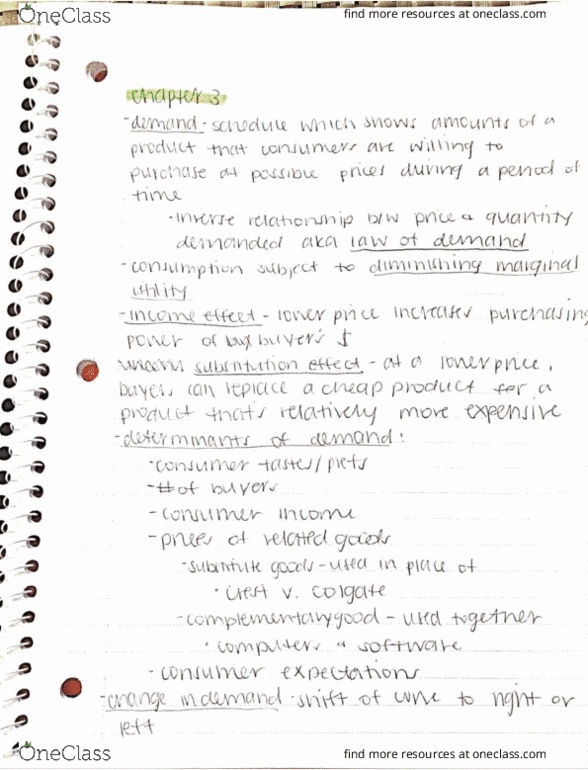 OneClass
find more resources at oneclass.com
chapter 3
-demand - schedule which shows amounts of a
product that consumers are willing to
purchase at possible prices during a period of
time
·inverse relationship b/w price & quantity
demanded aka law of demand
-consumption subject to diminishing marginal
utility
-income effect - lower price increases purchasing
power of buyers $
substitution effect - at a lower price,
buyers can replace a cheap product for a
product that's relatively more expensive
-determinants of demand:
·consumer tastes/
-# of buyers
-consumer income
-prices of related goods
-substitute goods - used in place of
·crest v. colgate
-complementary good - used together
·computers & software
-consumer expectations
-change in demand - shift of curve to right or
left
OneClass
find more resources at oneclass.com